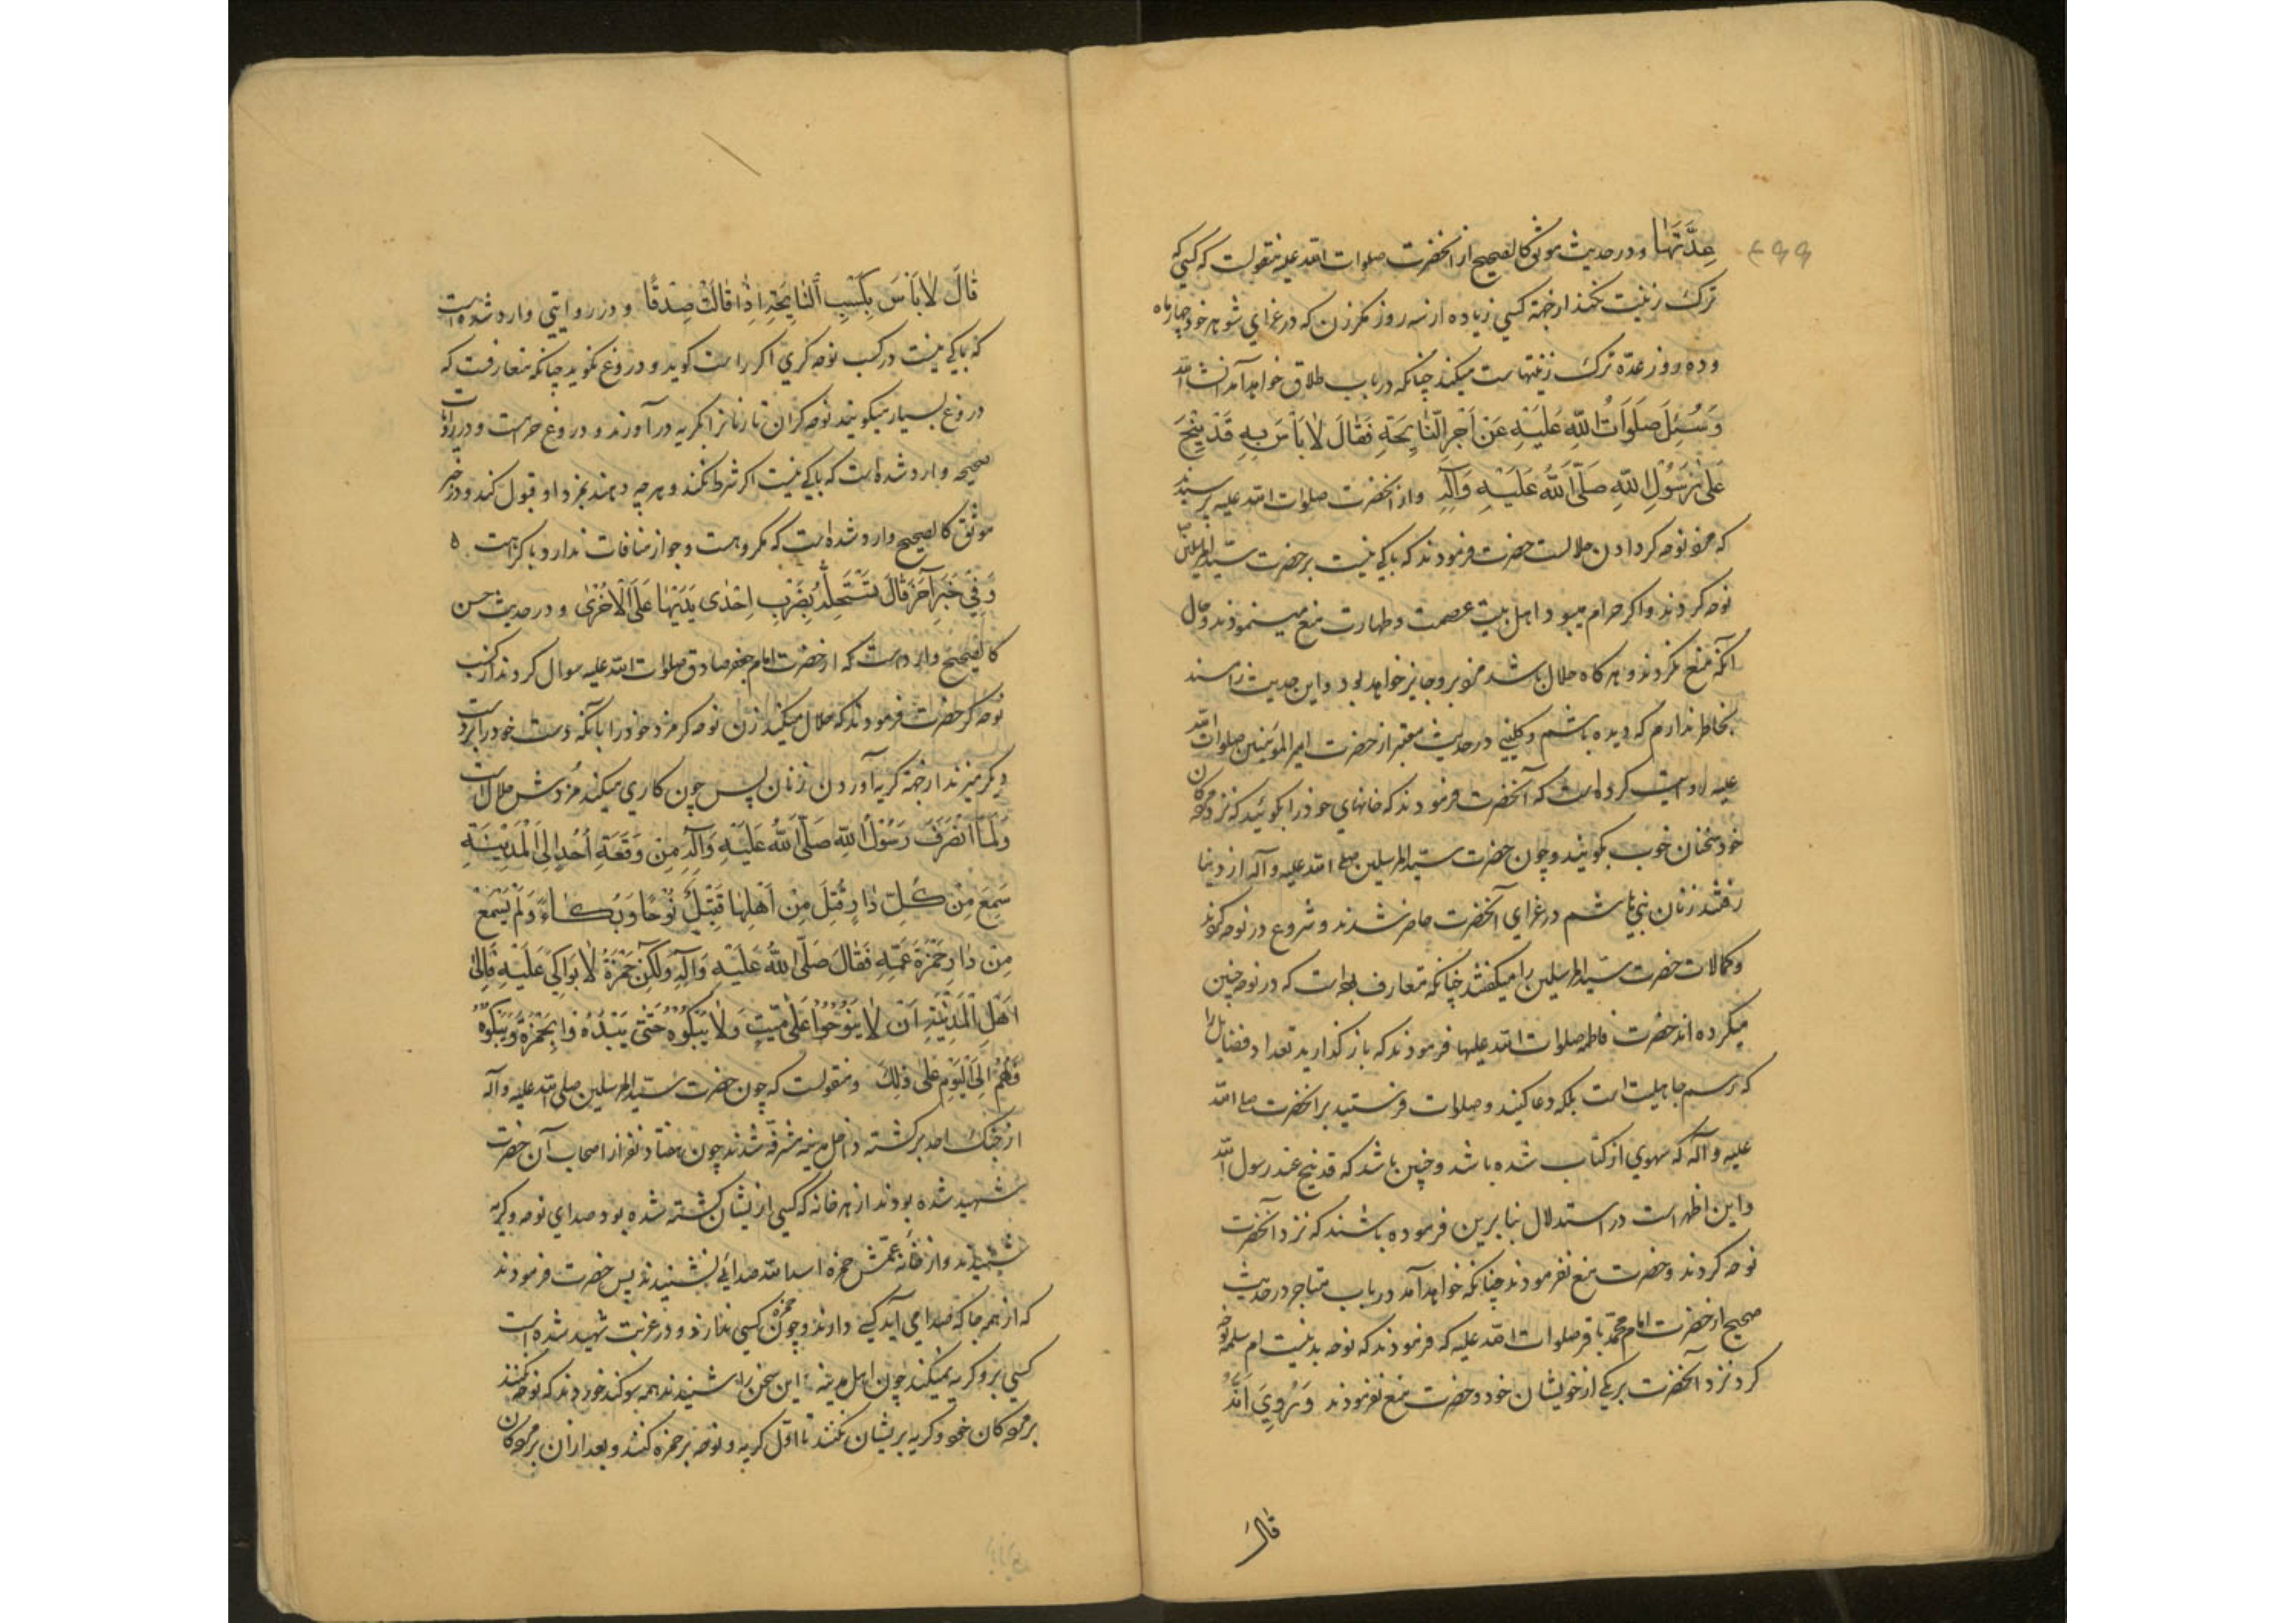 عِدَّتَهٰا و در حدیث موثق کالصحیح از انحضرت صلوات الله علیه منقولست که کسی که
ترک زینت نکند از جهة کسی زیاده از سه روز مکر زن که در عزای شوهر خود چهار ماه
و ده روز عدّه ترک زینتهاست میکند چنانکه در باب طلاق خواهد آمد انشاء الله
وَسُئِلَ صَلَوَاتُ اللّٰهِ عَلَیْهِ عَن اَجْرِ النّٰایِحَةِ فَقٰالَ لاٰ بَاْسَ بِهِ قَدْ نِیْحَ
عَلیٰ رَسُوْلِ اللّٰهِ صَلَّی اللّٰهُ عَلَیْهِ وَآلِهِ و از انحضرت صلوات الله علیه پرسیدند
که مزد نوحه کر دادن حلالست حضرت فرمودند که باکی نیست بر حضرت سید المرسلین ص
نوحه کردند و اکر حرام میبود اهل بیت عصمت و طهارت منع مینمودند و حال
آنکه منع نکردند و هرکاه حلال باشد مزد برو جایز خواهد بود و این حدیث را سند
بخاطر ندارم که دیده باشم و کلینی در حدیث معتبر از حضرت امیر المؤمنین صلوات الله
علیه روایت کرده است که آنحضرت فرمودند که خانهای خود را بکوئید که نزد مردکان
خود سخنان خوب بکویند و چون حضرت سیّد المرسلین صلی الله علیه و آله از دنیا
رفتند زنان بنی هاشم در عزای آنحضرت حاضر شدند و شروع در نوحه کردند
و کمالات حضرت سیّد المرسلین را میکفتند چنانکه متعارف بوده است که در نوحه چنین
میکرده اند حضرت فاطمه صلوات الله علیها فرمودند که باز کذارید تعداد فضایل را
که رسم جاهلیت است بلکه دعا کنید و صلوات فرستید بر انحضرت صلی الله
علیه و آله که سهوی از کتاب شده باشد و چنین باشد که قد نیح عند رسول الله
و این اظهر است در استدلال بنا برین فرموده باشند که نزد انحضرت
نوحه کردند و حضرت منع نفرمودند چنانکه خواهد آمد در باب متاجر در حدیث
صحیح از حضرت امام محمد باقر صلوات الله علیه که فرمودند که نوحه بدنیت ام سلمه نوحه
کرد نزد آنحضرت بر یکی از خویشان خود و حضرت منع نفرمودند وَ رُوِیَ اَنَّهُ
قٰالَ
قٰالَ لاٰ بَاْسَ بِکَسْبِ النّٰایِحَةِ اِذٰا قٰالَتْ صِدْقًا و در روایتی وارد شده است
که باکی نیست در کسب نوحه کری اکر راست کوید و دروغ نکوید چنانکه متعارفست که
دروغ بسیار میکویند نوحه کران تا زنانرا بکریه در آورند و دروغ حرامست و در روایت
صحیحه وارد شده است که باکی نیست اکر شرط نکند و هر چه دهند بمزد او قبول کند و در خبر
موثق کالصحیح وارد شده است که مکروهست و جواز منافات ندارد با کراهت ٥
وَفِی خَبَرٍ آخَرَ قٰالَ تَسْتَحِلُّهُ بِضَرْبِ اِحْدٰی یَدَیْهٰا عَلَی الْاُخْرٰی و در حدیث حسن
کالصحیح وارد است که از حضرت امام جعفر صادق صلوات الله علیه سوال کردند از کسب
نوحه کر حضرت فرمودند که حلال میکند زن نوحه کر مزد خود را بآنکه دست خود را بر دست
دیکر میزند از جهة کریه آوردن زنان پس چون کاری میکند مزدش حلال است
وَلَمَّا انْصَرَفَ رَسُوْلُ اللّٰهِ صَلَّی اللّٰهُ عَلَیْهِ وَآلِهِ مِن وَقْعَةِ اُحُدٍ اِلَی الْمَدِیْنَةِ
سَمِعَ مِنْ کُلِّ دٰارٍ قُتِلَ مِن اَهْلِهٰا قَتِیْلٌ نَوْحًا وَبُکٰاءً وَلَمْ یَسْمَعْ
مِن دٰارِ حَمْزَةَ عَمِّهِ فَقٰالَ صَلَّی اللّٰهُ عَلَیْهِ وَآلِهِ وَلٰکِنْ حَمْزَةُ لاٰ بَوَاکِیَ عَلَیْهِ فَاٰلیٰ
اَهْلُ الْمَدِیْنَةِ اَن لاٰ یَنُوْحُوْا عَلیٰ مَیِّتٍ وَلاٰ یَبْکُوْهُ حَتّٰی یَبْدَؤُا بِحَمْزَةَ وَیَبْکُوْهُ
فَهُمْ اِلَی الْیَوْمِ عَلیٰ ذٰلِکَ و منقولست که چون حضرت سیّد المرسلین صلی الله علیه و آله
از جنک احد برکشته داخل مدینه مشرفه شدند چون هفتاد نفر از اصحاب آن حضرت
شهید شده بودند از هر خانه که کسی ازیشان کشته شده بود صدای نوحه و کریه
شنیدند و از خانه عمّش حمزه اسد الله صدائی نشنیدند پس حضرت فرمودند
که از همه جا که صدا می آید کسی دارند و چون حمزه کسی ندارد و در غربت شهید شده است
کسی برو کریه نمیکند چون اهل مدینه این سخن را شنیدند همه سوکند خوردند که نوحه نکنند
بر مردکان خود و کریه بریشان نکنند تا اوّل کریه و نوحه بر حمزه کنند و بعد از ان بر مردکان